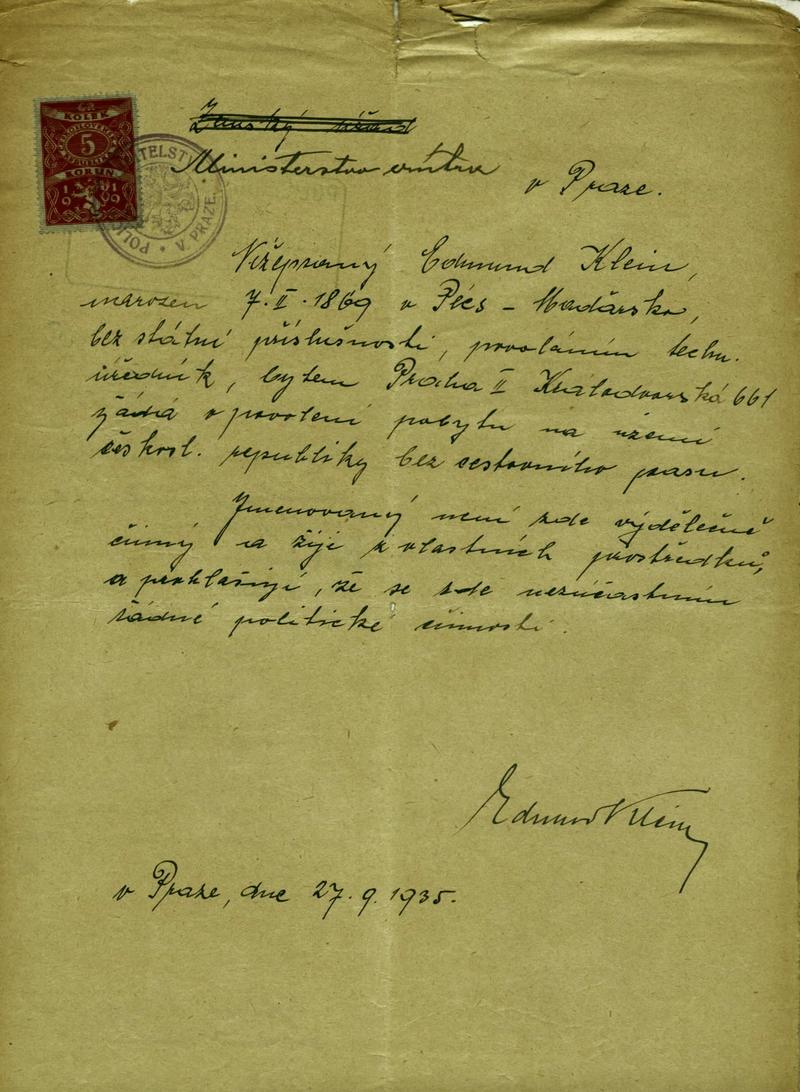 KOLEK
5
KORUN
1919
POLI TELSTV V PRAZE.
Zemský úřad
Ministerstvo vnitra
v Praze.
Nížepsaný Edmund Klein,
narozen 7. II. 1869 v Pécs - Maďarsko,
bez státní příslušnosti, povoláním techn.
úředník, bytem Praha II Králodvorská 661
žádá o povolení pobytu na území
českosl. republiky bez cestovního pasu.
Jmenovaný není zde výdělečně
činný a žije z vlastních prostředků,
a prohlašuji, že se zde nezúčastním
žádné politické činnosti.
Edmund Klein
v Praze, dne 27. 9. 1935.